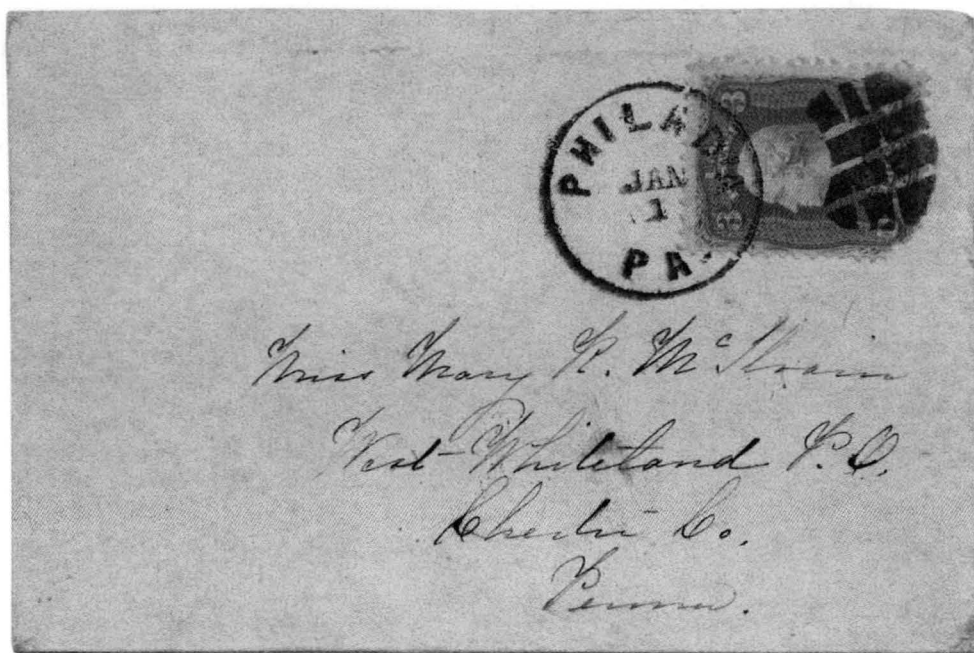 PHILAD'A
JAN
1
PA.
3 3
3
Miss Mary R. McIlvain
West-Whiteland P.O.
Chester Co.
Penna.